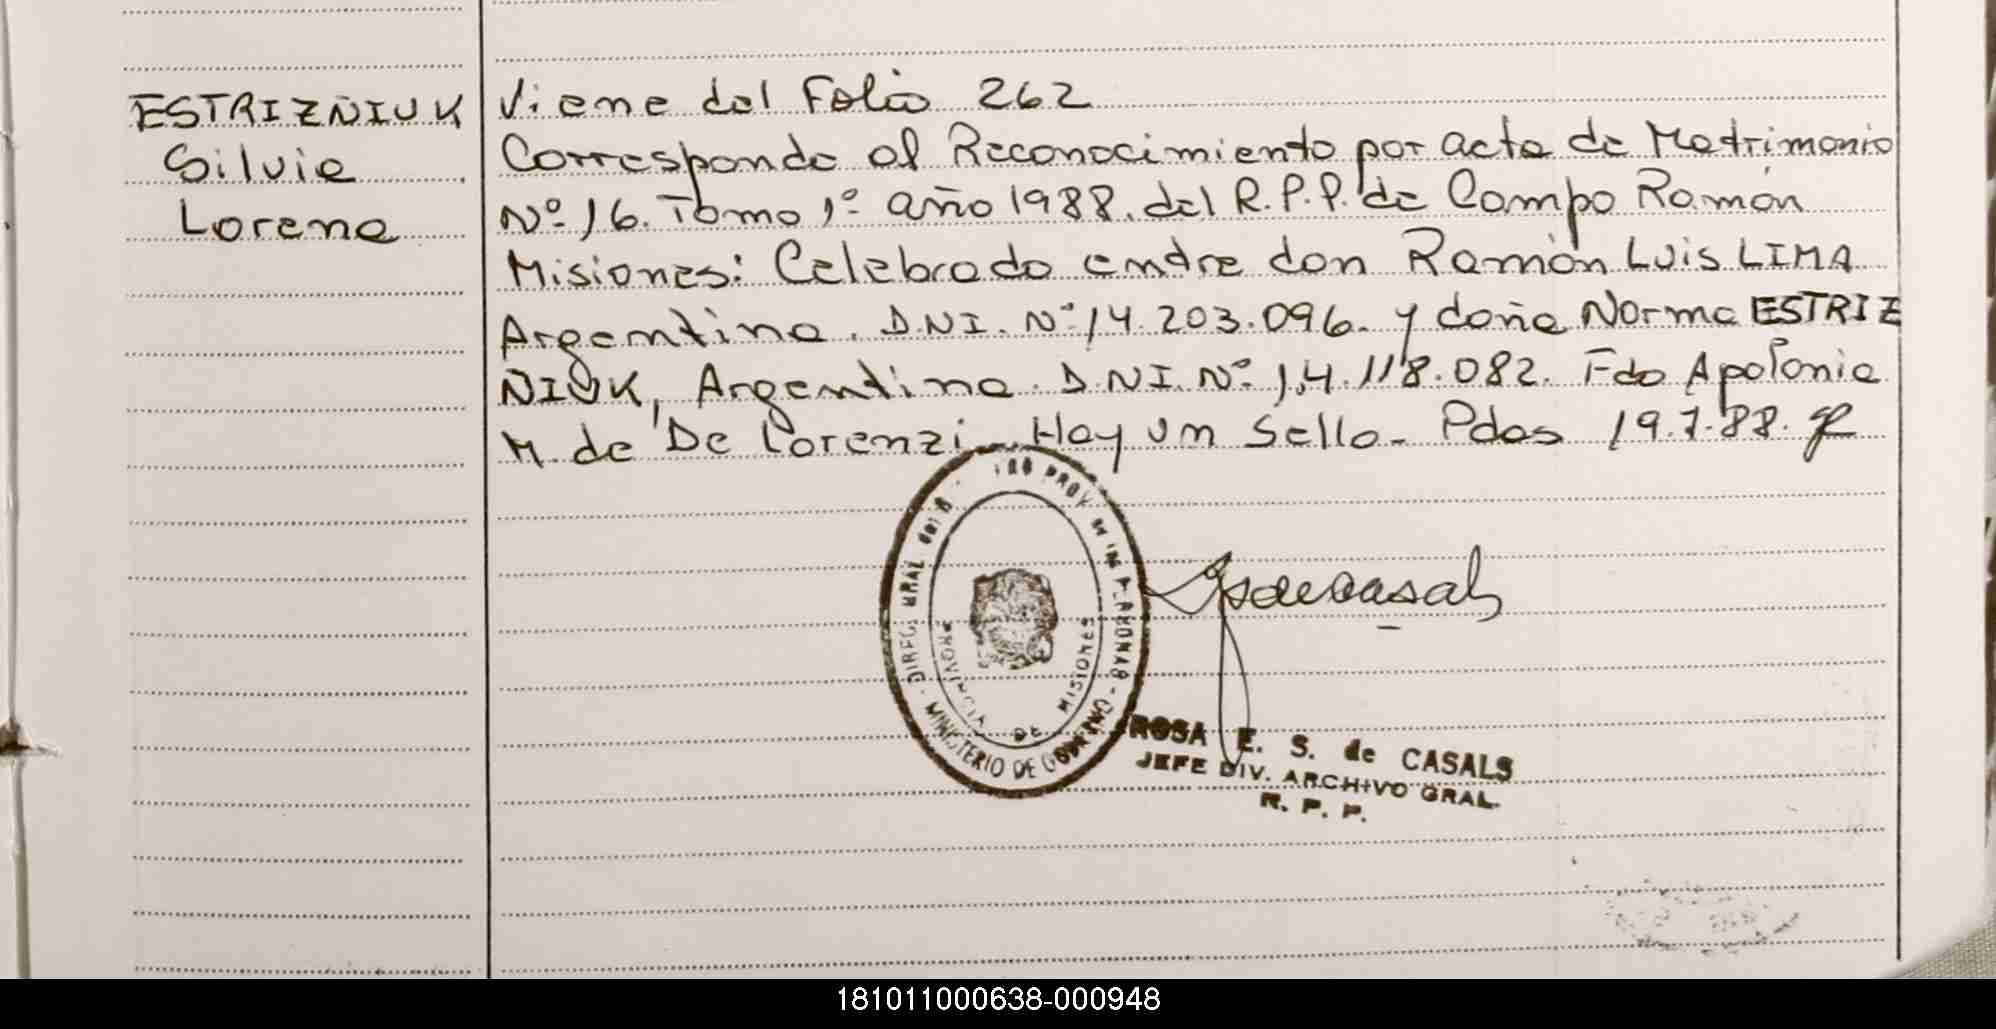 ESTRIZÑIUK
Silvia
Lorena
Viene del Folio 262
Corresponde al Reconocimiento por acta de Matrimonio
Nº 16. Tomo 1º año 1988. del R.P.P. de Campo Ramón
Misiones: Celebrado entre don Ramón Luis LIMA
Argentino. D.N.I. Nº 14.203.096. y doña Norma ESTRIZ
ÑIUK, Argentina. D.N.I. Nº 14.118.082. Fdo Apolonia
M. de De Lorenzi. Hay un Sello. Pdas 19.7.88.
PROV
PERSONAS
MINISTERIO DE GOBIERNO
PROVINCIA DE MISIONES
ROSA E. S. de CASALS
JEFE DIV. ARCHIVO GRAL.
R. P. P.
181011000638-000948